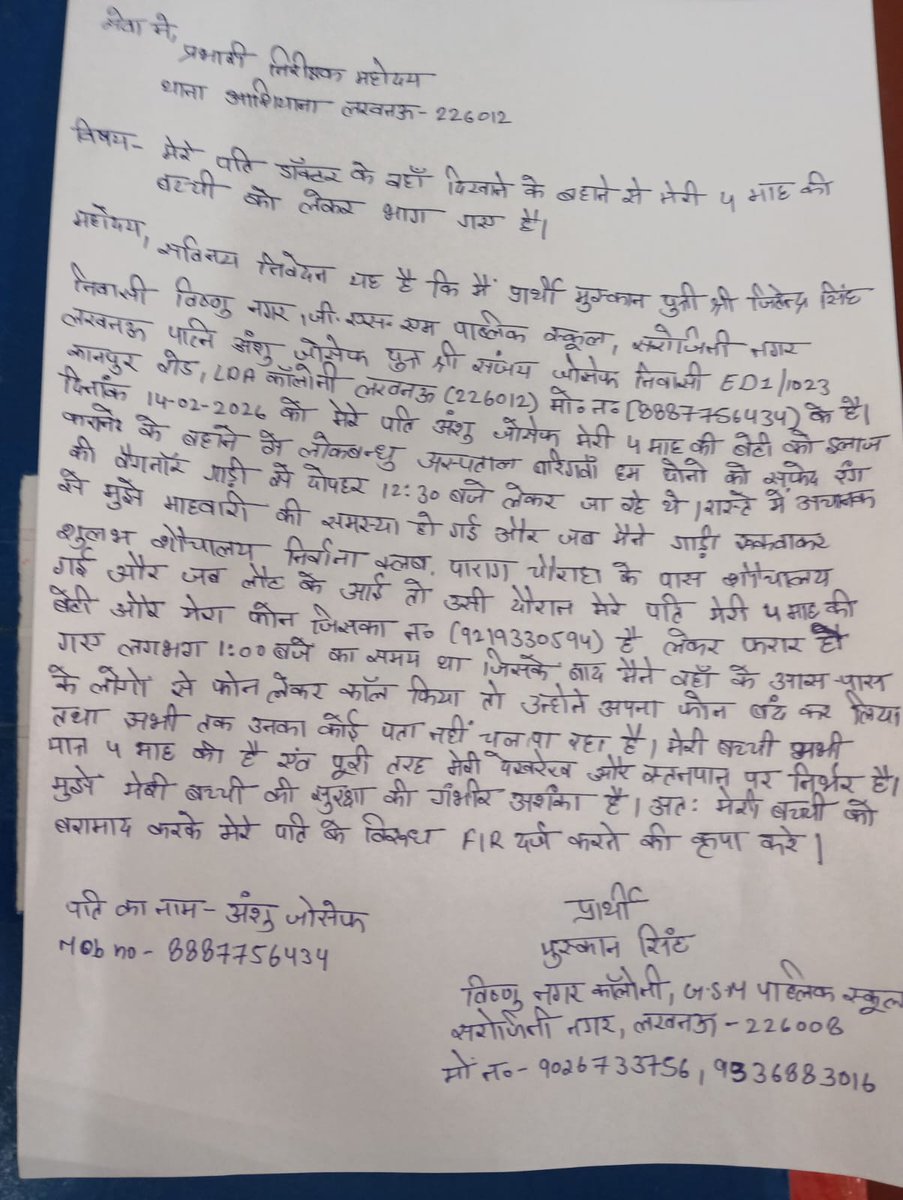 सेवा में,
प्रभारी निरीक्षक महोदय
थाना आशियाना लखनऊ - 226012
विषय - मेरे पति डॉक्टर के वहाँ दिखाने के बहाने से मेरी 4 माह की
बच्ची को लेकर भाग गए है।
महोदय, सविनय निवेदन यह है कि मैं प्रार्थी मुस्कान पुत्री श्री जितेन्द्र सिंह
निवासी विष्णु नगर, जी. एस. एम पाब्लिक स्कूल, सरोजिनी नगर
लखनऊ पत्नि अंशु जोसेफ पुत्र श्री संजय जोसेफ निवासी ED1/1023
कानपुर रोड, LDA कॉलोनी लखनऊ (226012) मो० न० (8887756434) के है।
दिनांक 14-02-2026 को मेरे पति अंशु जोसेफ मेरी 4 माह की बेटी को इलाज
कराने के बहाने से लोकबन्धु अस्पताल हम दोनो को सफेद रंग
की वैगनॉर गाड़ी से दोपहर 12:30 बजे लेकर जा रहे थे। रास्ते में अचानक
से मुझे माहवारी की समस्या हो गई और जब मैने गाड़ी रूकवाकर
शुलभ शौचालय निर्वाना क्लब, पाराग चौराहा के पास शौचालय
गई और जब लौट के आई तो उसी दौरान मेरे पति मेरी 4 माह की
बेटी और मेरा फोन जिसका न० (9219330594) है लेकर फरार हो
गए लगभग 1:00 बजे का समय था जिसके बाद मैने वहाँ के आस-पास
के लोगो से फोन लेकर कॉल किया तो उन्होने अपना फोन बंद कर लिया
तथा अभी तक उनका कोई पता नहीं चल पा रहा है। मेरी बच्ची अभी
मात्र 4 माह की है एंव पूरी तरह मेरी देखरेख और स्तनपान पर निर्भर है।
मुझे मेरी बच्ची की सुरक्षा की गंभीर अशंका है। अतः मेरी बच्ची को
बरामाद करके मेरे पति के विरूध FIR दर्ज करने की कृपा करे।
प्रार्थी
पति का नाम - अंशु जोसेफ
मुस्कान सिंह
Mob no - 8887756434
विष्णु नगर कॉलोनी, G.S.M पाब्लिक स्कूल
सरोजिनी नगर, लखनऊ - 226008
मों न० - 9026733756, 9336883016